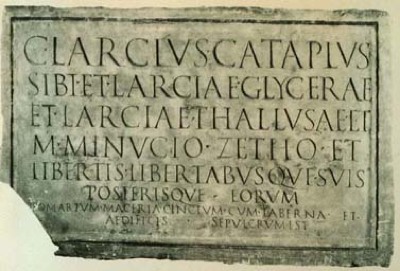 C·LARCIVS·CATAPLVS
SIBI·ET·LARCIAE·GLYCERAE
ET·LARCIAE·THALLVSAE·ET
M·MINVCIO·ZETHO·ET
LIBERTIS·LIBERTABVSQVE·SVIS
POSTERISQVE · EORVM
POMARIVM·MACERIA·CINCTVM·CVM·TABERNA · ET
AEDIFICIS · SEPVLCRVM·IST